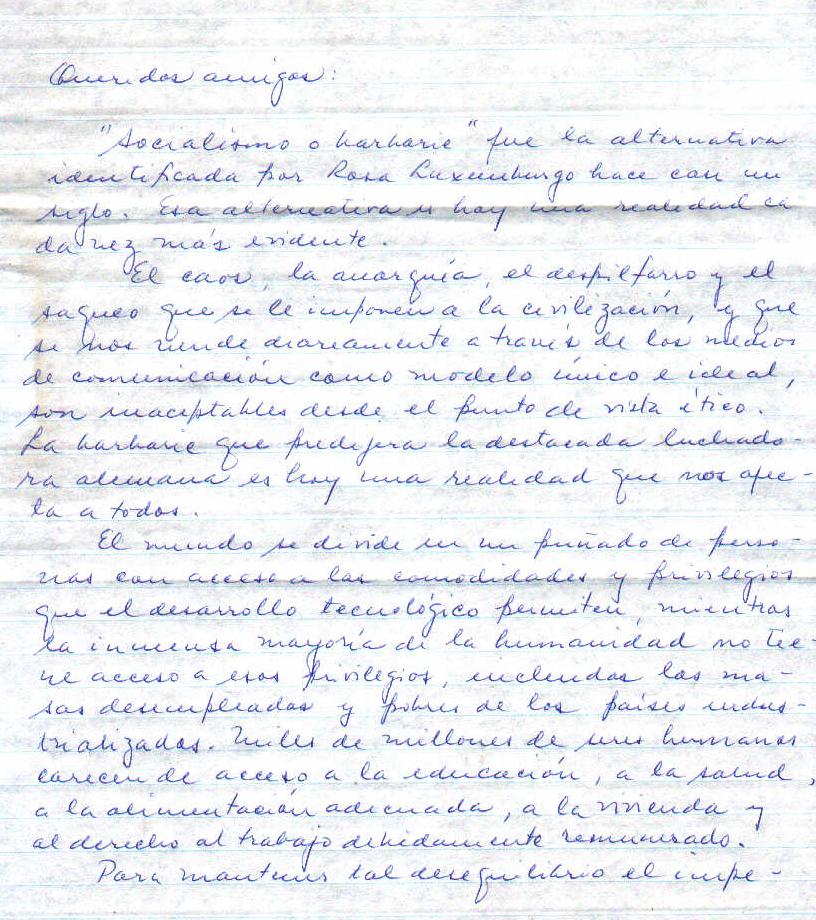 Queridos amigos:
"Socialismo o barbarie" fue la alternativa
identificada por Rosa Luxemburgo hace casi un
siglo. Esa alternativa es hoy una realidad ca
da vez más evidente.
El caos, la anarquía, el despilfarro y el
saqueo que se le imponen a la civilización, y que
se nos vende diareamente a través de los medios
de comunicación como modelo único e ideal,
son inaceptables desde el punto de vista ético.
La barbarie que predijera la destacada luchado-
ra alemana es hoy una realidad que nos afec-
ta a todos.
El mundo se divide en un puñado de perso-
nas con acceso a las comodidades y privilegios
que el desarrollo tecnológico permiten, mientras
la inmensa mayoría de la humanidad no tie-
ne acceso a esos privilegios, incluidas las ma-
sas desempleadas y pobres de los países indus-
trializados. Miles de millones de seres humanos
carecen de acceso a la educación, a la salud,
a la alimentación adecuada, a la vivienda y
al derecho al trabajo debidamente remunerado.
Para mantener tal desequilibrio el impe-